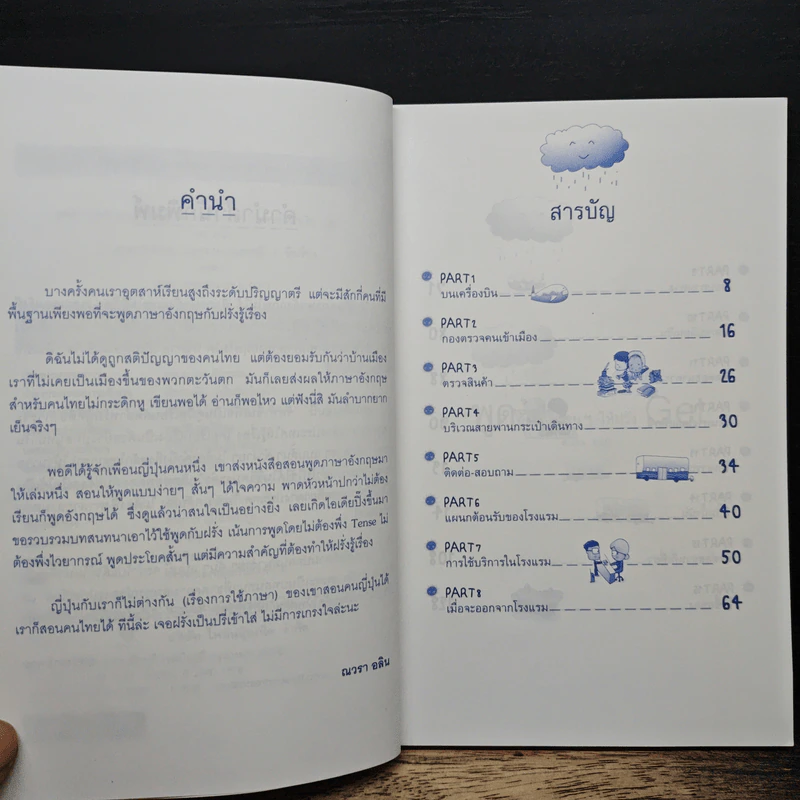 คำนำ
บางครั้งคนเราอุตสาห์เรียนสูงถึงระดับปริญญาตรี แต่จะมีสักกี่คนที่มี
พื้นฐานเพียงพอที่จะพูดภาษาอังกฤษกับฝรั่งรู้เรื่อง
ดิฉันไม่ได้ดูถูกสติปัญญาของคนไทย แต่ต้องยอมรับกันว่าบ้านเมือง
เราที่ไม่เคยเป็นเมืองขึ้นของพวกตะวันตก มันก็เลยส่งผลให้ภาษาอังกฤษ
สำหรับคนไทยไม่กระดิกหู เขียนพอได้ อ่านก็พอไหว แต่ฟังนี่สิ มันลำบากยาก
เย็นจริงๆ
พอดีได้รู้จักเพื่อนญี่ปุ่นคนหนึ่ง เขาส่งหนังสือสอนพูดภาษาอังกฤษมา
ให้เล่มหนึ่ง สอนให้พูดแบบง่ายๆ สั้นๆ ได้ใจความ พาดหัวหน้าปกว่าไม่ต้อง
เรียนก็พูดอังกฤษได้ ซึ่งดูแล้วน่าสนใจเป็นอย่างยิ่ง เลยเกิดไอเดียปิ๊งขึ้นมา
ขอรวบรวมบทสนทนาเอาไว้ใช้พูดกับฝรั่ง เน้นการพูดโดยไม่ต้องพึ่ง Tense ไม่
ต้องพึ่งไวยากรณ์ พูดประโยคสั้นๆ แต่มีความสำคัญที่ต้องทำให้ฝรั่งรู้เรื่อง
ญี่ปุ่นกับเราก็ไม่ต่างกัน (เรื่องการใช้ภาษา) ของเขาสอนคนญี่ปุ่นได้
เราก็สอนคนไทยได้ ทีนี้ล่ะ เจอฝรั่งเป็นปรี่เข้าใส่ ไม่มีการเกรงใจล่ะนะ
ณวรา อลิน
สารบัญ
PART1
บนเครื่องบิน 8
PART2
กองตรวจคนเข้าเมือง 16
PART3
ตรวจสินค้า 26
PART4
บริเวณสายพานกระเป๋าเดินทาง 30
PART5
ติดต่อ-สอบถาม 34
PART6
แผนกต้อนรับของโรงแรม 40
PART7
การใช้บริการในโรงแรม 50
PART8
เมื่อจะออกจากโรงแรม 64